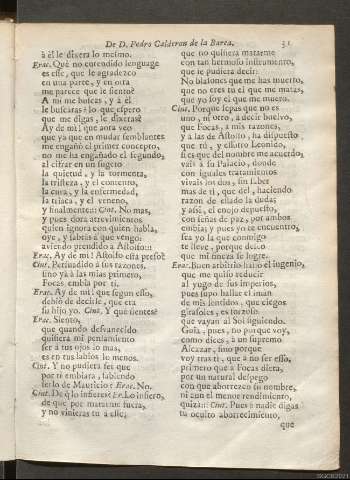 De D. Pedro Calderon de la Barca. 31
à èl le dixera lo mesmo.
Erac. Què no entendido lenguage
es esse, que le agradezco
en una parte, y en otra
me parece que le siento?
A mi me buscas, y à èl
le buscàras? lo que espero
que me digas, le dixeras?
Ay de mi! que aora veo
que ya que en mudas semblantes
me engañò el primer concepto,
no me ha engañado el segundo,
al cifrar en un sugeto
la quietud, y la tormenta,
la tristeza, y el contento,
la cura, y la enfermedad,
la triaca, y el veneno,
y finalmente: Cint. No mas,
y pues dora atrevimientos
quien ignora con quien habla,
oye, y sabràs à què vengo:
aviendo prendido à Astolfo::
Erac. Ay de mi! Astolfo està preso?
Cint. Persuadido à sus razones,
uno và à las mias primero,
Focas, embia por ti.
Erac. Ay de mi! que segun esso,
debiò de decirle, que era
su hijo yo. Cint. Y què sientes?
Erac. Siento,
que quando desvanecido
quisiera mi pensamiento
ser à tus ojos lo mas,
es en tus labios lo menos.
Cint. Y no pudiera ser que
por ti embiara, sabiendo
ser lo de Mauricio? Erac. No.
Cint. De què lo infieres? Er. Lo infiero,
de que por matarme fuera,
y no vinieras tu à esse;
que no quisiera matarme
con tan hermoso instrumento,
que te pudiera decir:
No blasones que me has muerto,
que no eres tu el que me matas,
que yo soy el que me muero.
Cint. Porque sepas que no es
uno, ni otro, à decir buelvo,
que Focas, à mis razones,
y à las de Astolfo, ha dispuesto
que tù, y essotro Leonido,
si es que del nombre me acuerdo,
vais à su Palacio, donde
con iguales tratamientos
vivais los dos, sin saber
mas de ti, que dèl, haciendo
razon de estado la duda;
y assi, el enojo depuesto,
con señas de paz, por ambos
embia; y pues yo te encuentro,
sea yo la que conmigo
te lleve, porque deba
que mi fineza se logre.
Erac. Buen arbitrio hallò el ingenio,
que me quiso reducir
al yugo de sus imperios,
pues supo hallar el iman
de mis sentidos, que ciegos
girasoles, es forzoso
que vayan al Sol siguiendo.
Guia, pues, no porque voy,
como dices, à un supremo
Alcazar, sino porque
voy tras ti, que à no ser esso,
primero que à Focas diera,
por un natural despego
con que aborrezco su nombre,
ni aun el menor rendimiento,
quizà:: Cint. Pues à nadie digas
tu oculto aborrecimiento,
que